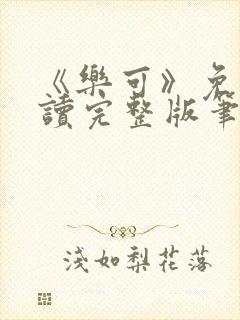 《樂可》免
讀完整版筆
淺如梨花落